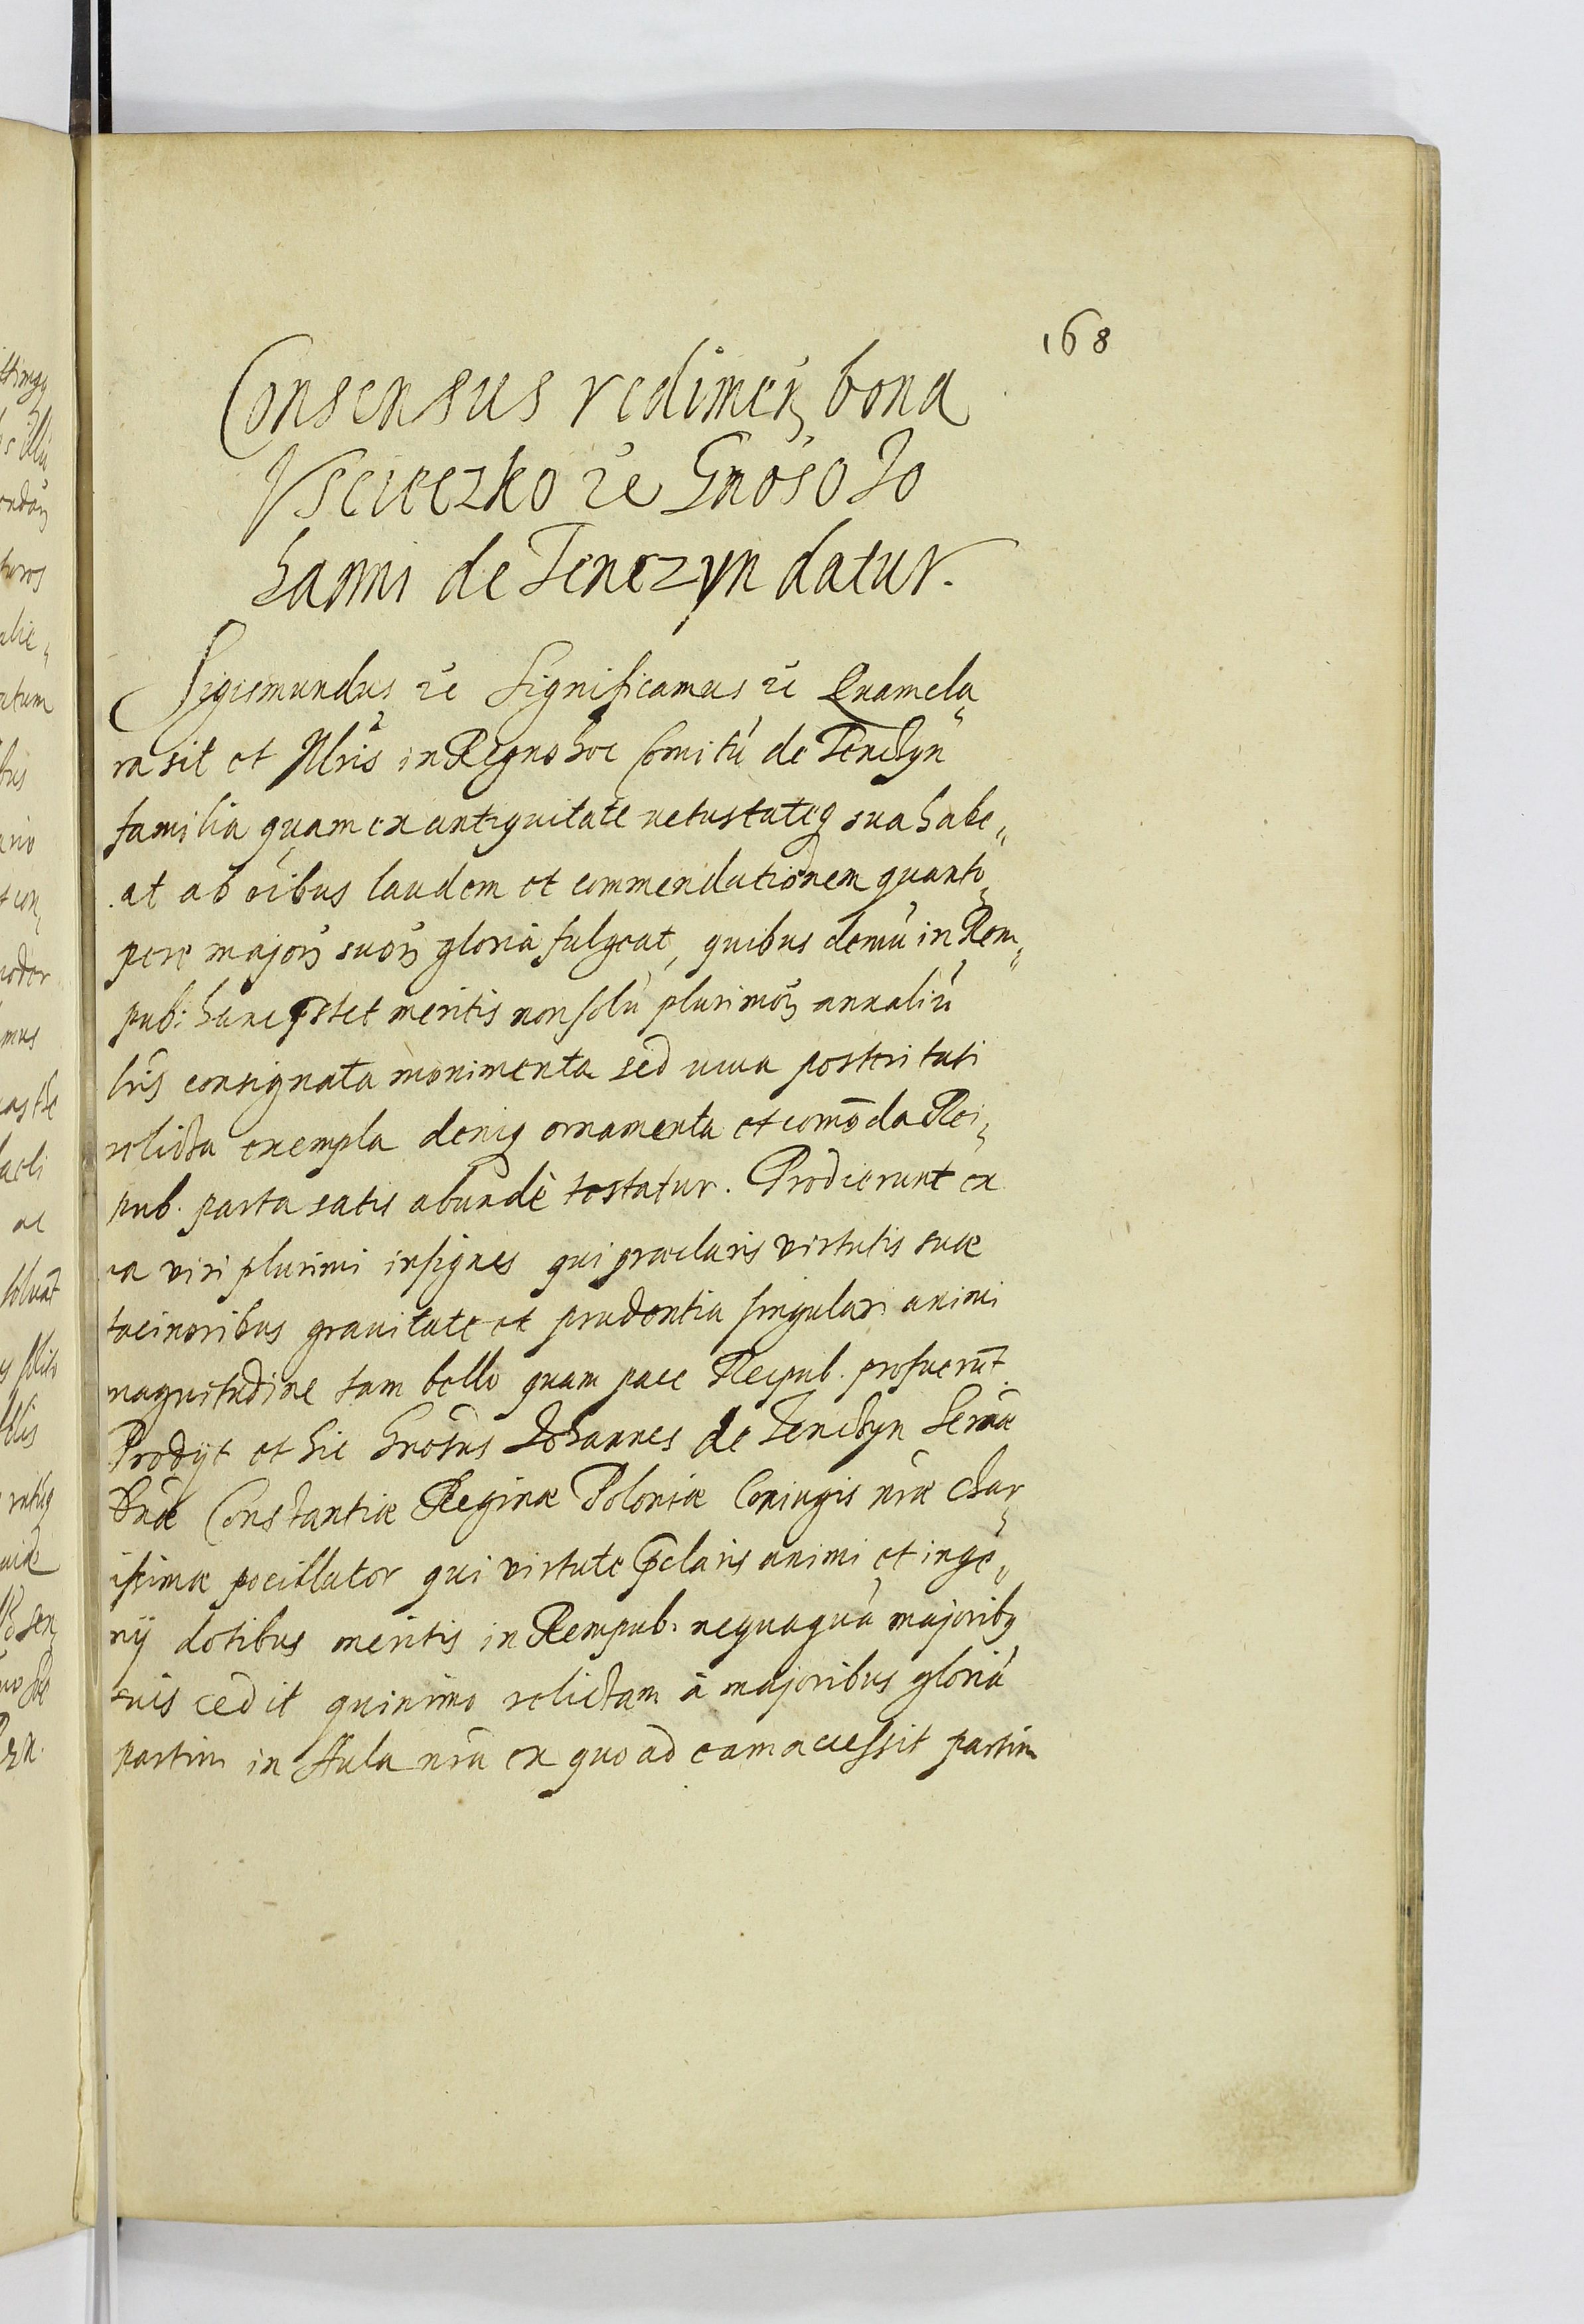 168
Consensus redimen̄ bona
Vscieczko &c Gnoso Jo
hanni de Tenczyn datur.
Sigismundus &c Significamus &c Quam cla„
ra sit et Illris in Regno hoc Comitũ de Tenczyn
familia quam ex antiquitate uetustateq sua habe„
at ab oibus laudem et commendationem quanto„
pere major̃ suor̃ gloria fulgeat, quibus demũ in Rem„
pub: hanc extet meritis non solũ plurimor̃ annaliũ
lris consignata monimenta sed uiua posteritati
relicta exempla deniq ornamenta et com̄oda Rei„
pub. parta satis abundè testatur. Prodierunt ex
ea viri plurimi insignes qui præclaris virtutis suæ
facinoribus grauitate et prudentia singulari animi
magnitudine tam bello quam pace Reipub. profuerũt.
Prodijt et hic Gnosus Johannes de Tenczyn Sermæ
Dnæ Constantiæ Reginæ Poloniæ Coniugis nræ char„
issimæ pocillator qui virtute p̄claris animi et inge„
nij dotibus meritis in Rempub. nequaquã majoribq
suis cedit quinimo relictam à majoribus gloriã
partim in Aula nrã ex quo ad eam accessit partim